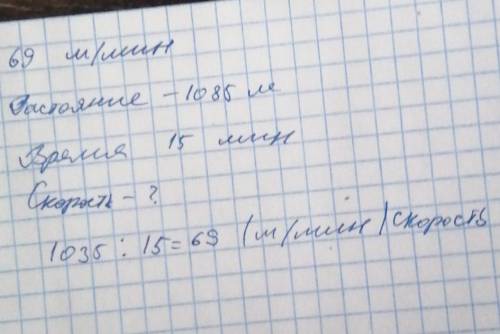 69 м/мин
Растояние - 1035 м
Время 15 мин
Скорость - ?
1035 : 15 = 69 (м/мин) скорость